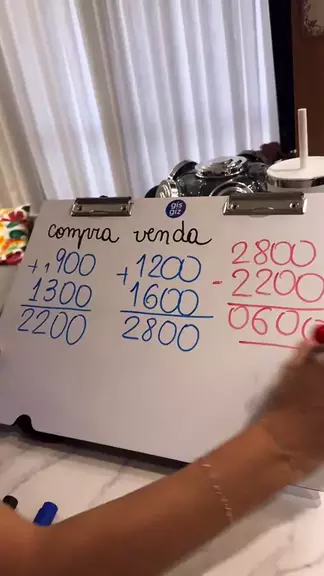 gis
giz
compra venda
+ 1900 + 1200 2800
1300 1600 - 2200
2200 2800 0600